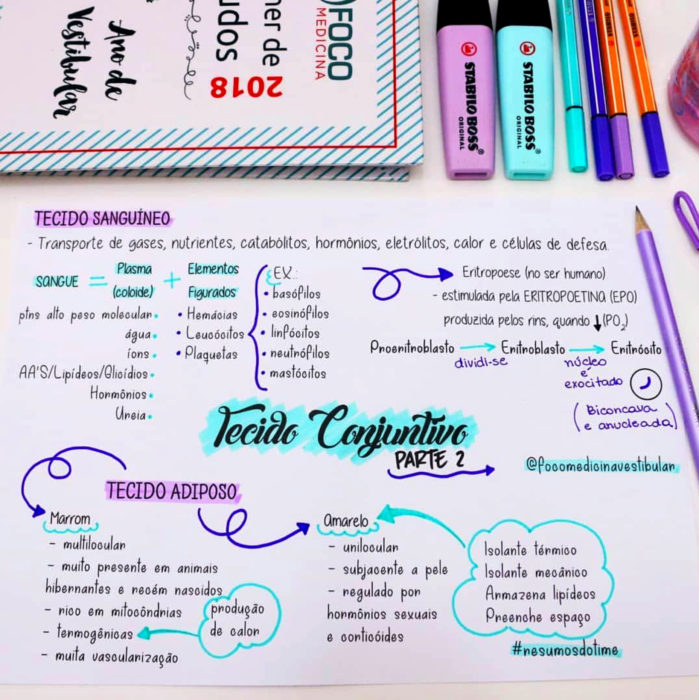 FOCO
MEDICINA
2018
Ano de
Vestibular
STABILO BOSS
ORIGINAL
STABILO BOSS
ORIGINAL
TECIDO SANGUÍNEO
- Transporte de gases, nutrientes, catabólitos, hormônios, eletrólitos, calor e células de defesa.
SANGUE = Plasma (coloide) + Elementos Figurados
ptns alto peso molecular
água
íons
AA'S/Lipídeos/Glicídios
Hormônios
Ureia
• Hemácias
• Leucócitos
• Plaquetas
EX.:
• basófilos
• eosinófilos
• linfócitos
• neutrófilos
• mastócitos
Eritropoese (no ser humano)
- estimulada pela ERITROPOETINA (EPO)
produzida pelos rins, quando ↓(PO₂)
Proeritroblasto → Eritroblasto → Eritrócito
dividi-se
núcleo
é
exocitado
(Biconcava
e anucleada)
Tecido Conjuntivo
PARTE 2
@focomedicinavestibular
TECIDO ADIPOSO
Marrom
- multilocular
- muito presente em animais
hibernantes e recém nascidos
- rico em mitocôndrias
- termogênicas
- muita vascularização
produção
de calor
amarelo
- unilocular
- subjacente a pele
- regulado por
hormônios sexuais
e corticóides
Isolante térmico
Isolante mecânico
Armazena lipídeos
Preenche espaço
#resumosdotime